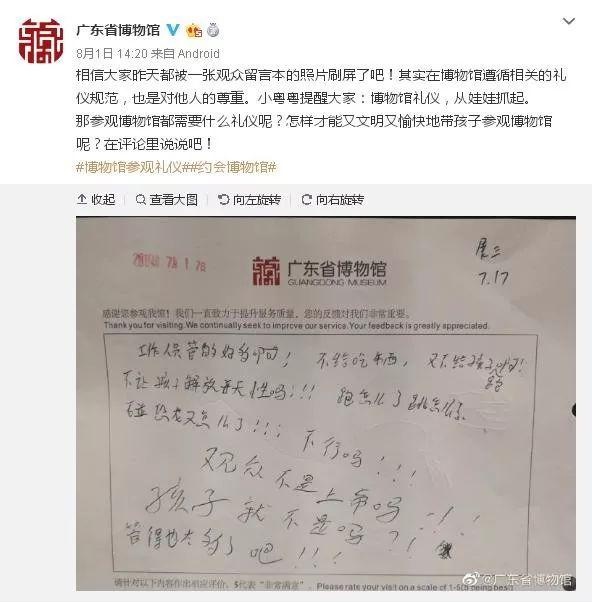 广东省博物馆
8月1日 14:20 来自 Android
相信大家昨天都被一张观众留言本的照片刷屏了吧！其实在博物馆遵循相关的礼
仪规范，也是对他人的尊重。小粤粤提醒大家：博物馆礼仪，从娃娃抓起。
那参观博物馆都需要什么礼仪呢？怎样才能又文明又愉快地带孩子参观博物馆
呢？在评论里说说吧！
#博物馆参观礼仪##约会博物馆#
收起 查看大图 向左旋转 向右旋转
展三
7.17
广东省博物馆
GUANGDONG MUSEUM
感谢您参观我馆！我们一直致力于提升服务质量，您的反馈对我们非常重要。
Thank you for visiting. We continually seek to improve our service. Your feedback is greatly appreciated.
工作人员管的好多啊！不给吃东西，又不给孩子跑！
不让孩子解放天性吗！！！跑怎么了跳怎么了
碰恐龙又怎么了！！！
不行吗！！！
观众不是上帝吗！！！
孩子就不是吗？！！
管得也太多了吧！！！
@广东省博物馆
请针对以下内容作出相应评价，5代表“非常满意”。 Please rate your visit on a scale of 1-5(5 being best)